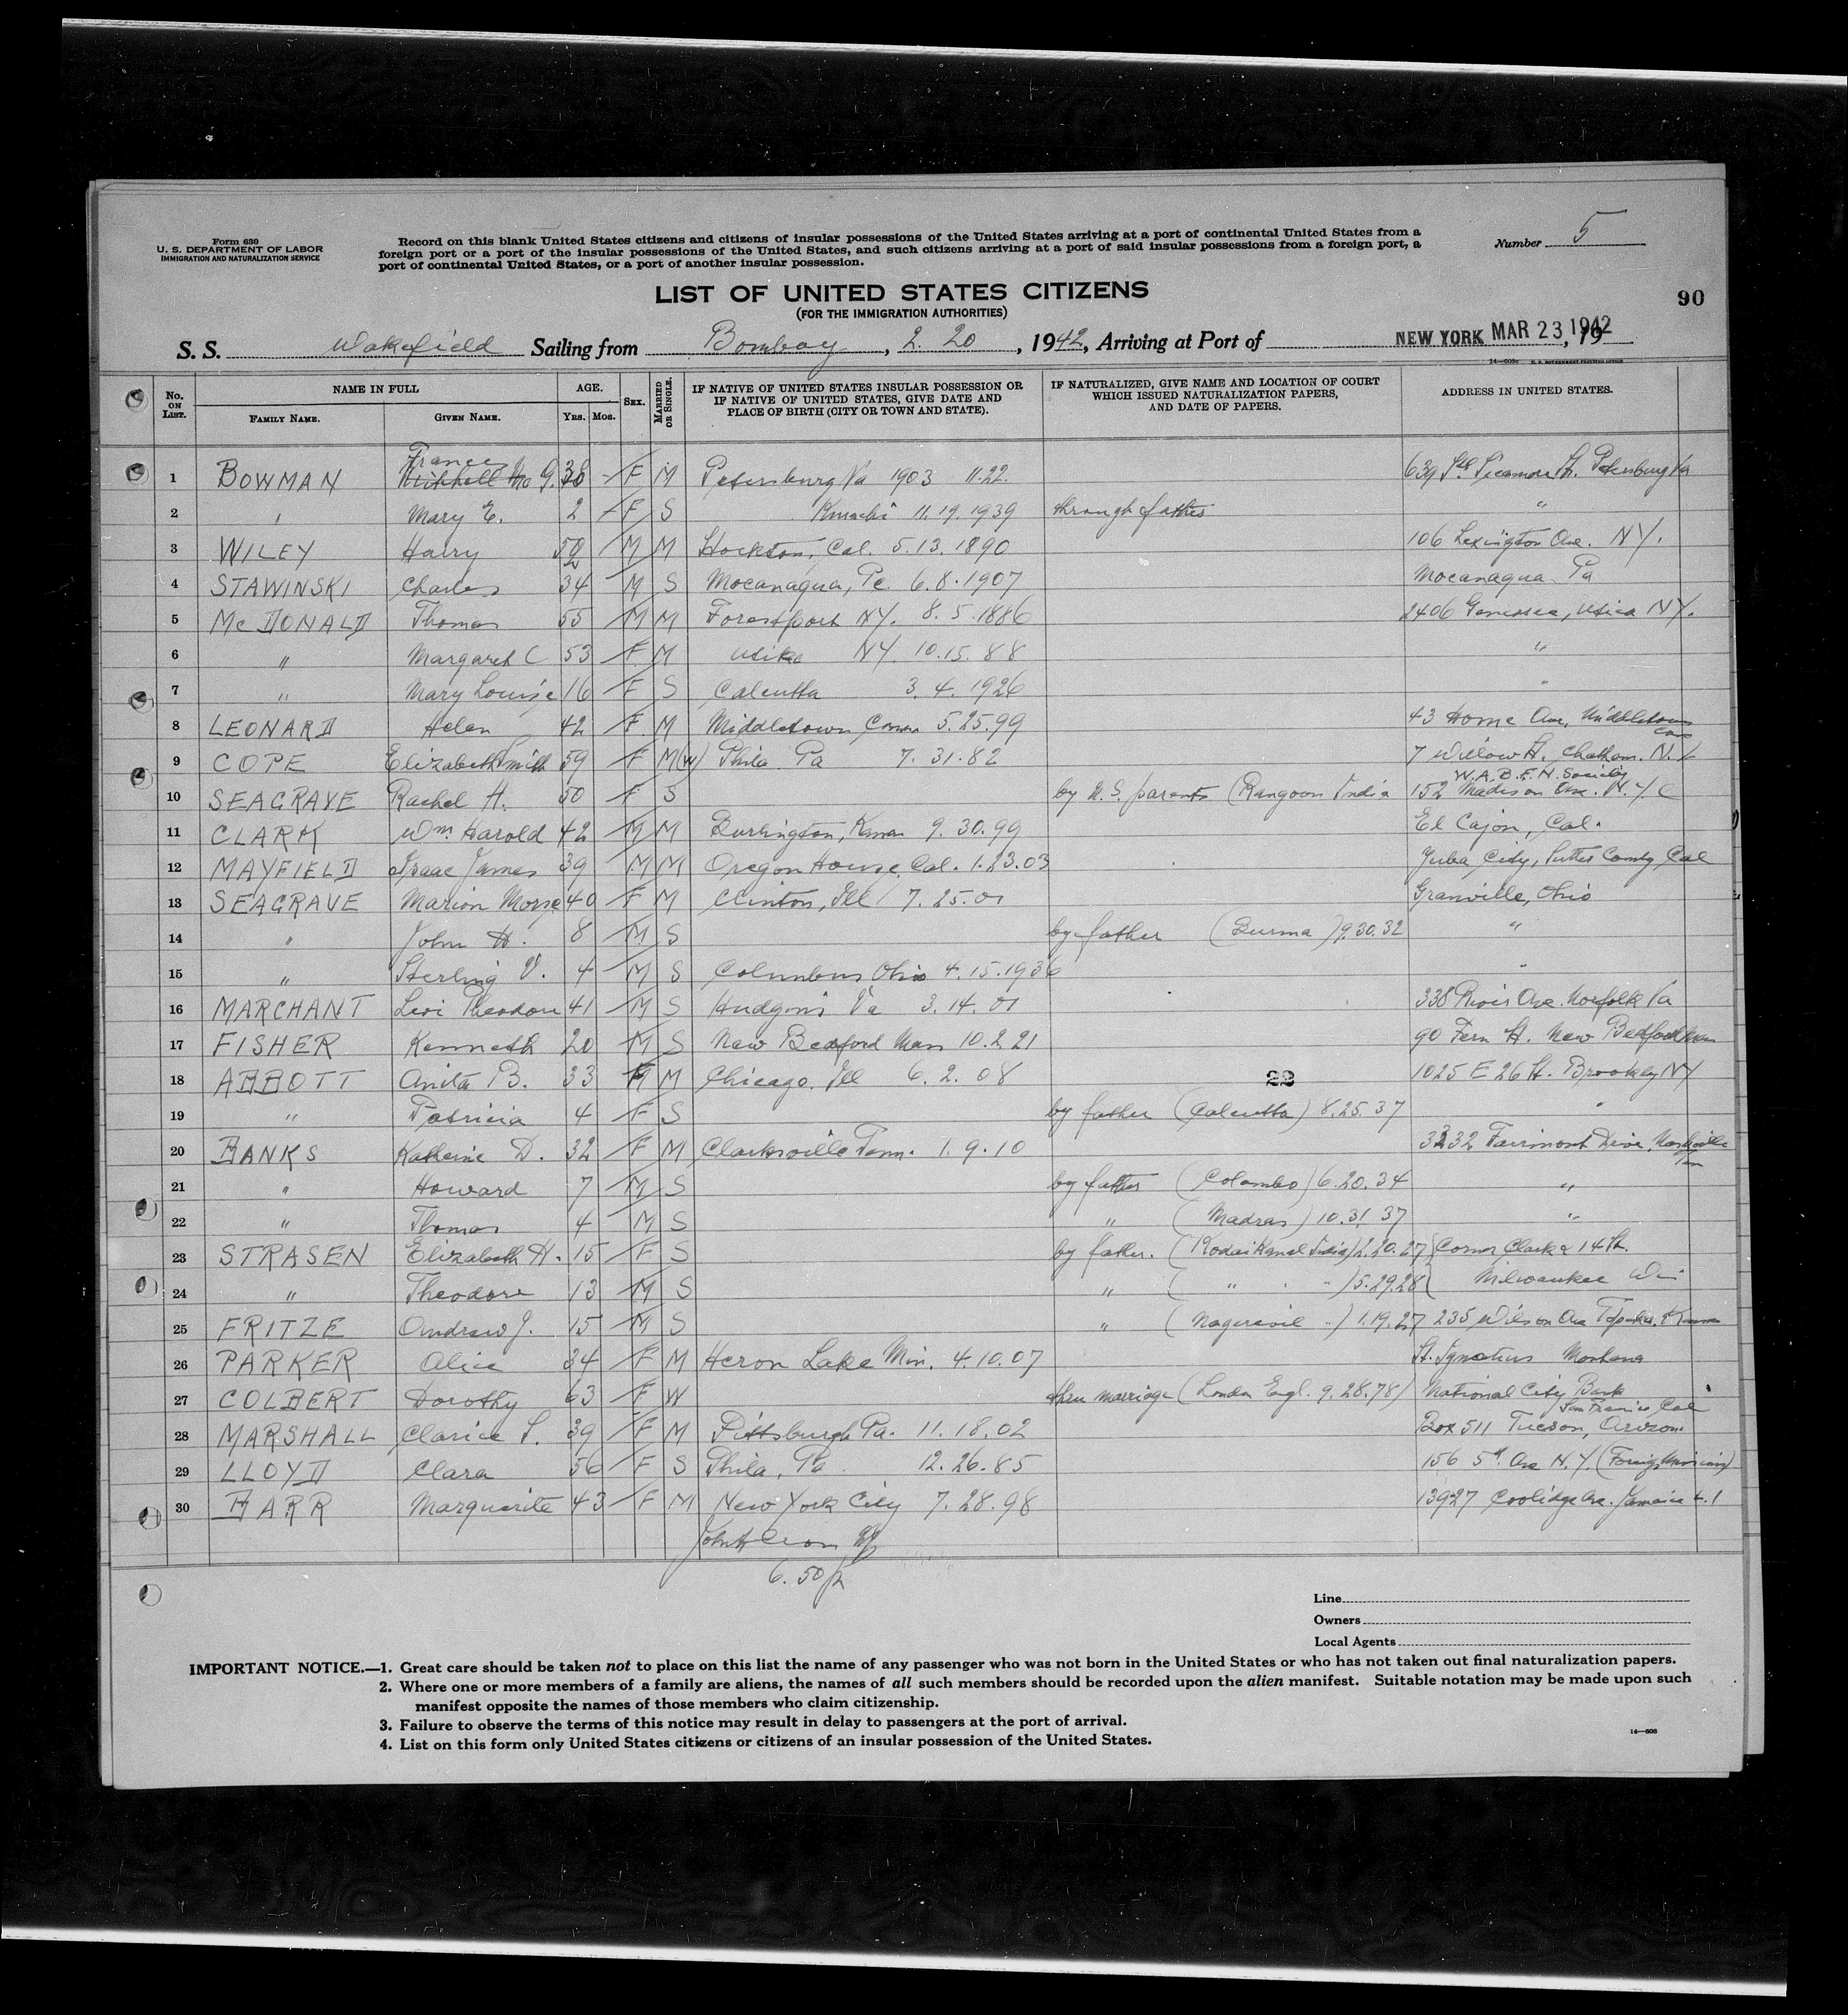 Form 630
U. S. DEPARTMENT OF LABOR
IMMIGRATION AND NATURALIZATION SERVICE
Record on this blank United States citizens and citizens of insular possessions of the United States arriving at a port of continental United States from a
foreign port or a port of the insular possessions of the United States, and such citizens arriving at a port of said insular possessions from a foreign port, a
port of continental United States, or a port of another insular possession.
Number 5
LIST OF UNITED STATES CITIZENS
(FOR THE IMMIGRATION AUTHORITIES)
90
S. S. Wakefield Sailing from Bombay, 2. 20, 1942, Arriving at Port of NEW YORK MAR 23 1942, 19
No. ON LIST. NAME IN FULL FAMILY NAME. GIVEN NAME. AGE. YRS. MOS. SEX. MARRIED OR SINGLE. IF NATIVE OF UNITED STATES INSULAR POSSESSION OR IF NATIVE OF UNITED STATES, GIVE DATE AND PLACE OF BIRTH (CITY OR TOWN AND STATE). IF NATURALIZED, GIVE NAME AND LOCATION OF COURT WHICH ISSUED NATURALIZATION PAPERS, AND DATE OF PAPERS. ADDRESS IN UNITED STATES.
1 BOWMAN Frances 38 F M Petersburg Va 1903 11.22. 639 Sycamore St. Petersburg Va
2 " Mary E. 2 F S Karachi 11.19.1939 through father "
3 WILEY Harry M M Stockton, Cal. 5.13.1890 106 Lexington Ave. NY.
4 STAWINSKI Charles 34 M S Mocanaqua, Pa. 6.8.1907 Mocanaqua Pa
5 McDONALD Thomas 55 M M Forestport NY. 8.5.1886 2406 Genesee, Utica NY.
6 " Margaret C 53 F M Utica NY. 10.15.88 "
7 " Mary Louise 16 F S Calcutta 3.4.1926 "
8 LEONARD Helen 42 F M Middletown Conn 5.25.99 43 Home Ave, Middletown Conn
9 COPE Elizabeth Smith 59 F M(W) Phila Pa 7.31.82 7 Willow St. Chatham. N.J.
10 SEAGRAVE Rachel H. 50 F S by U.S. parents (Rangoon India W.A.B.F.M. Society 152 Madison Ave. N.Y.C
11 CLARK Wm. Harold 42 M M Burlington, Kansas 9.30.99 El Cajon, Cal.
12 MAYFIELD Isaac James 39 M M Oregon House, Cal. 1.23.03 Yuba City, Sutter County Cal
13 SEAGRAVE Marion Morse 40 F M Clinton, Ill 7.25.01 Granville, Ohio
14 " John H. 8 M S by father (Burma) 9.30.32 "
15 " Sterling V. 4 M S Columbus Ohio 4.15.1936 "
16 MARCHANT Levi Theodore 41 M S Hudgins Va 3.14.01 338 Ave. Norfolk Va
17 FISHER Kenneth 20 M S New Bedford Mass 10.2.21 90 Fern St. New Bedford Mass
18 ABBOTT Anita B. 33 F M Chicago. Ill 6.2.08 22 1025 E 26 St. Brooklyn NY
19 " Patricia 4 F S by father (Calcutta) 8.25.37 "
20 BANKS Katherine D. 32 F M Clarksville Tenn. 1.9.10 3232 Fairmont Drive, Nashville Tenn
21 " Howard 7 M S by father (Colombo) 6.20.34 "
22 " Thomas 4 M S " (Madras) 10.31.37 "
23 STRASEN Elizabeth H. 15 F S by father. (Kodaikanal India) 2.20.27 Corner Clark & 14 St.
24 " Theodore 13 M S " ( " " ) 5.29.28 Milwaukee Wis
25 FRITZE Andrew J. 15 M S " (Nagercoil ") 1.19.27 235 Wilson Ave Topeka. Kansas
26 PARKER Alice 34 F M Heron Lake Min. 4.10.07 St. Ignatius Montana
27 COLBERT Dorothy 63 F W thru marriage (London Engl. 9.28.78) National City Bank San Francisco Cal
28 MARSHALL Clarice S. 39 F M Pittsburgh Pa. 11.18.02 Box 511 Tucson, Arizona
29 LLOYD Clara 56 F S Phila, Pa 12.26.85 156 5th Ave N.Y. (Foreign Missions)
30 BARR Marguerite 43 F M New York City 7.28.98 13927 Coolidge Ave. Jamaica L.I
6.50 p
Line
Owners
Local Agents
IMPORTANT NOTICE.—1. Great care should be taken not to place on this list the name of any passenger who was not born in the United States or who has not taken out final naturalization papers.
2. Where one or more members of a family are aliens, the names of all such members should be recorded upon the alien manifest. Suitable notation may be made upon such
manifest opposite the names of those members who claim citizenship.
3. Failure to observe the terms of this notice may result in delay to passengers at the port of arrival.
4. List on this form only United States citizens or citizens of an insular possession of the United States.
14—608